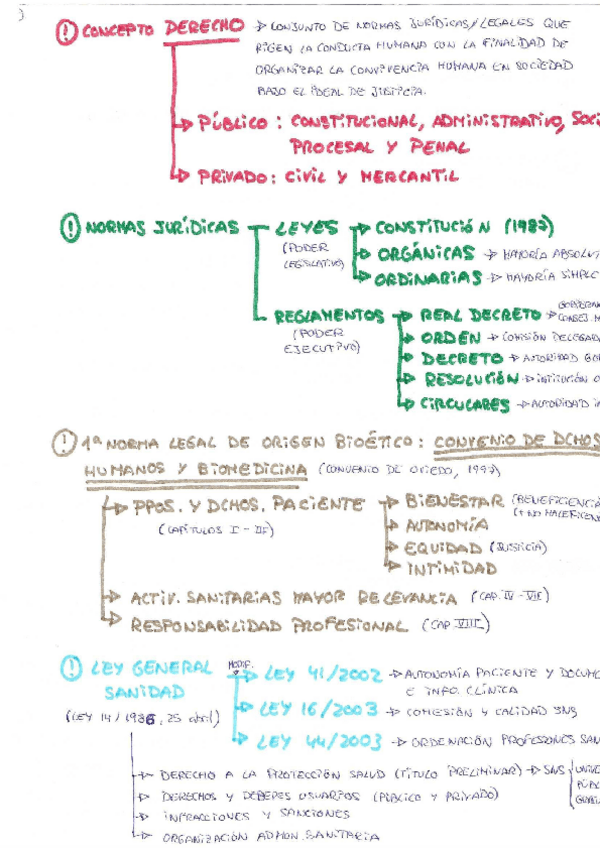 ① CONCEPTO DERECHO → CONJUNTO DE NORMAS JURÍDICAS/LEGALES QUE
RIGEN LA CONDUCTA HUMANA CON LA FINALIDAD DE
ORGANIZAR LA CONVIVENCIA HUMANA EN SOCIEDAD
BAJO EL IDEAL DE JUSTICIA.
→ PÚBLICO : CONSTITUCIONAL, ADMINISTRATIVO, SOCI
PROCESAL Y PENAL
→ PRIVADO : CIVIL Y MERCANTIL
! NORMAS JURÍDICAS LEYES → CONSTITUCIÓN
(PODER LEGISLATIVO) → ORGÁNICAS → MAYORÍA ABSOLUT
→ ORDINARIAS → MAYORÍA SIMPLE
REGLAMENTOS → REAL DECRETO → CONSEJ. M
(PODER EJECUTIVO) → ORDEN → COMISIÓN DELEGADA
→ DECRETO → AUTORIDAD
→ RESOLUCIÓN → INSTITUCIÓN
→ CIRCULARES → AUTORIDAD
! 1ª NORMA LEGAL DE ORIGEN BIOÉTICO : CONVENIO DE DCHOS
HUMANOS Y BIOMEDICINA (CONVENIO DE OVIEDO, 1997)
→ PPOS. Y DCHOS. PACIENTE → BIENESTAR (BENEFICENCIA
(CAPÍTULOS I - III) (+ NO MALEFICEN
→ AUTONOMÍA
→ EQUIDAD (JUSTICIA)
→ INTIMIDAD
→ ACTIV. SANITARIAS MAYOR RELEVANCIA (CAP. IV - VII)
→ RESPONSABILIDAD PROFESIONAL (CAP VIII)
! LEY GENERAL MODIF. → LEY 41/2002 → AUTONOMÍA PACIENTE Y DOCUM
SANIDAD E INFO. CLÍNICA
(LEY 14/1986, 25 abril) → LEY 16/2003 → COHESIÓN Y CALIDAD SNS
→ LEY 44/2003 → ORDENACIÓN PROFESIONES SAN
→ DERECHO A LA PROTECCIÓN SALUD (TÍTULO PRELIMINAR) → SNS
→ DERECHOS Y DEBERES USUARIOS (PÚBLICO Y PRIVADO)
→ INFRACCIONES Y SANCIONES
→ ORGANIZACIÓN ADMON. SANITARIA